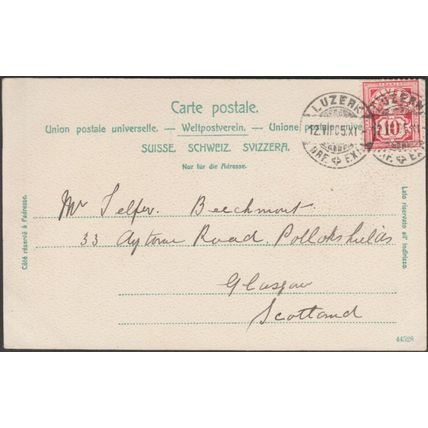 Carte postale.
Union postale universelle. — Weltpostverein. — Unione postale unive
SUISSE. SCHWEIZ. SVIZZERA.
Nur für die Adresse.
LUZERN
12.VII.05.XI
BRF. EXP.
LUZERN
10
Mr Telfer. Beechmont.
33 Aytoun Road Pollokshields
Glasgow
Scotland
Côté réservé à l'adresse.
Lato riservato all' indirizzo.
44528